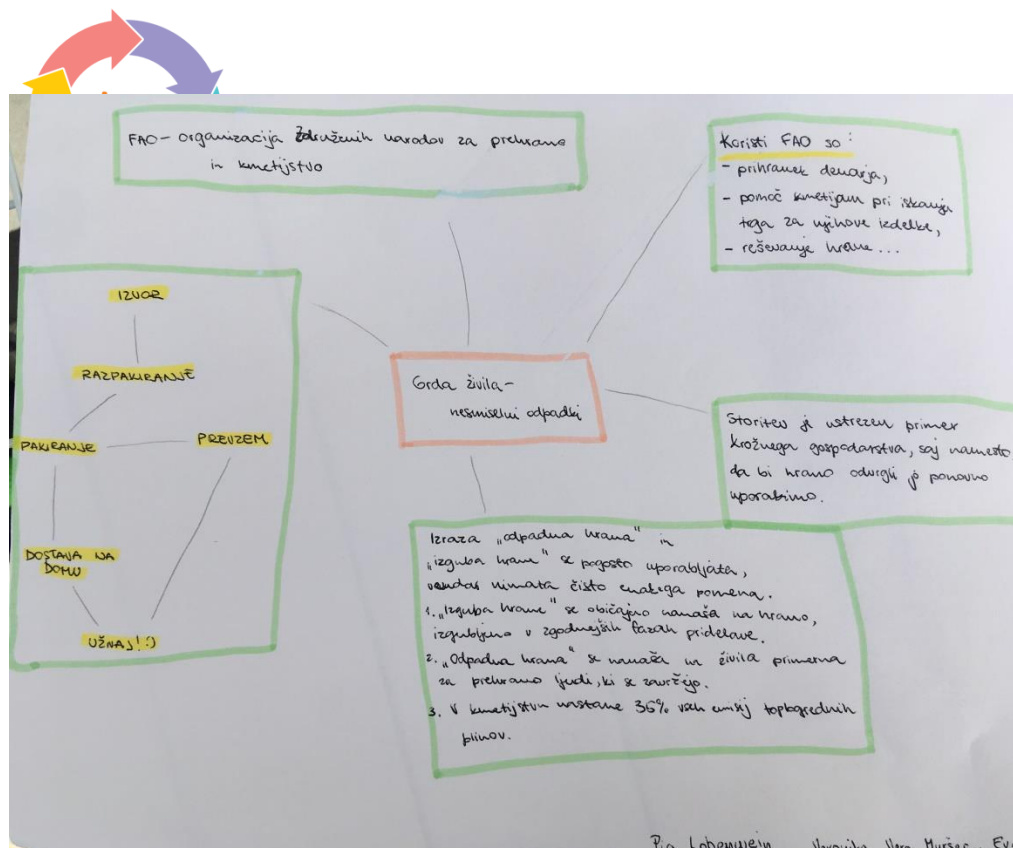 FAO - organizacija Združenih narodov za prehrano
in kmetijstvo
Koristi FAO so:
- prihranek denarja,
- pomoč kmetijam pri iskanju
trga za njihove izdelke,
- reševanje hrane...
IZVOR
RAZPAKIRANJE
PAKIRANJE
PREVZEM
DOSTAVA NA
DOMU
UŽIVAJ! :)
Grda živila -
nesmiselni odpadki
Storitev je ustrezen primer
krožnega gospodarstva, saj namesto
da bi hrano odvrgli jo ponovno
uporabimo.
Izraza „odpadna hrana" in
„izguba hrane" se pogosto uporabljata,
vendar nimata čisto enakega pomena.
1. „Izguba hrane" se običajno nanaša na hrano,
izgubljeno v zgodnejših fazah pridelave.
2. „Odpadna hrana" se nanaša na živila primerna
za prehrano ljudi, ki se zavržejo.
3. V kmetijstvu nastane 35% vseh emisij toplogrednih
plinov.